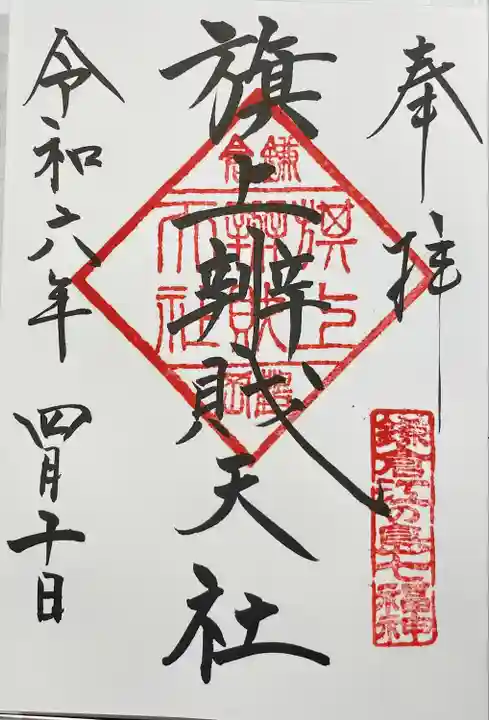 奉拝
鎌倉江の島七福神
旗上辨財天社
鎌倉
旗上
辨財
天社
鶴岡
令和六年四月十日